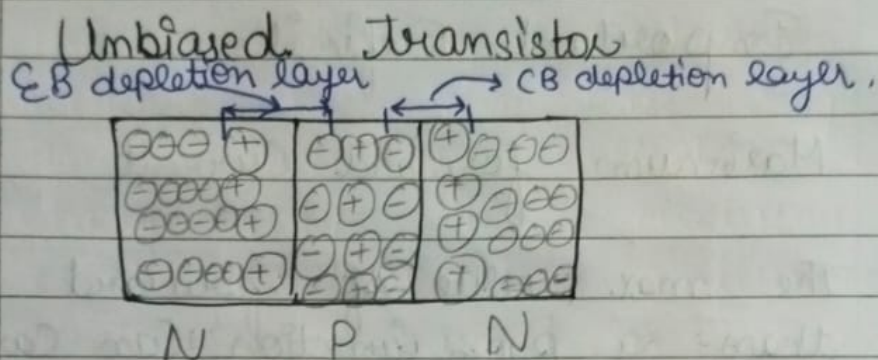 Unbiased transistor
EB depletion layer → CB depletion layer.
⊖⊖⊖ ⊕ ⊖⊕⊖ ⊕⊖⊖⊖
⊖⊖⊖⊖⊕ ⊖⊕⊖ ⊕⊖⊖⊖
⊖⊖⊖⊖⊕ ⊖⊕⊖ ⊕⊖⊖⊖
⊖⊖⊖⊖⊕ ⊖⊕⊖ ⊕⊖⊖⊖
N P N